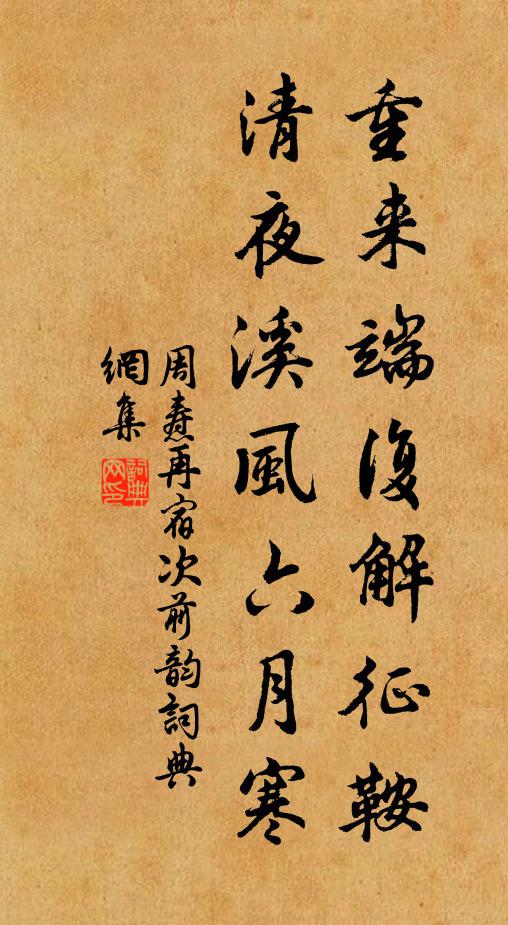 重来端復解征鞍
清夜溪風六月寒
周焘再宿次前韵詞典
網集
詞典
网印